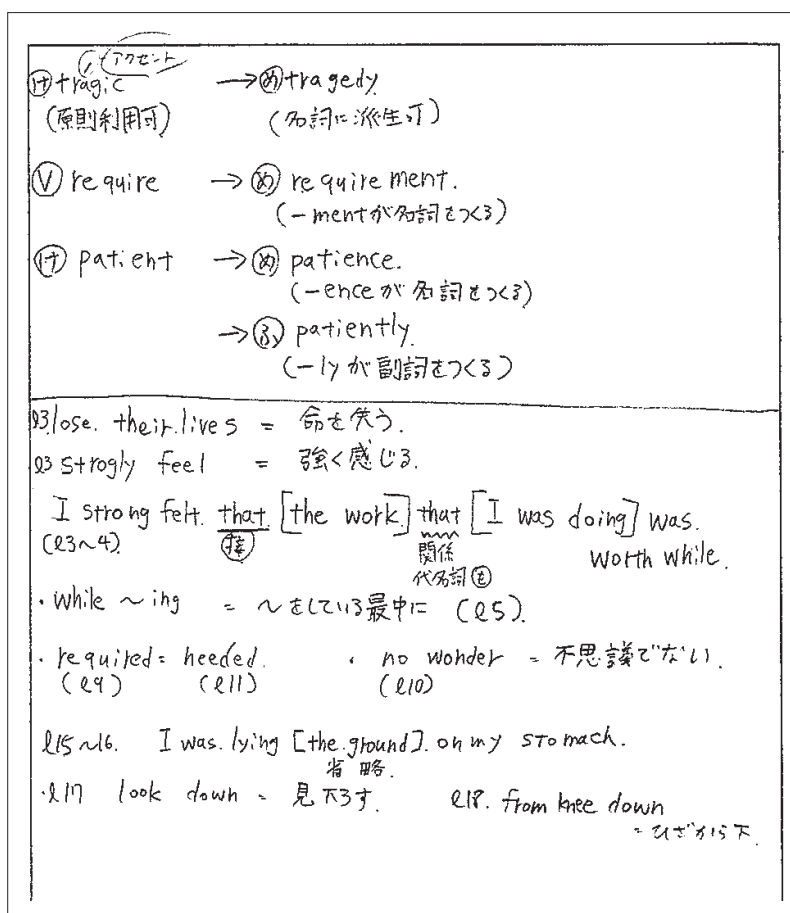 アクセント
㋘ tragic → ㋱ tragedy
(原則利用可) (名詞に派生可)
Ⓥ require → ㋱ requirement.
(-mentが名詞をつくる)
㋘ patient → ㋱ patience.
(-enceが名詞をつくる)
→ ㋫ patiently.
(-lyが副詞をつくる)
l3 lose. their. lives = 命を失う.
l3 strogly feel = 強く感じる.
I strong felt. that. [the work.] that [I was doing] was.
(l3~4). 接 関係 worth while.
代名詞 目
・while ~ing = ~をしている最中に (l5).
・required = needed. ・no wonder = 不思議でない.
(l9) (l11) (l10)
l15~16. I was. lying [the ground]. on my stomach.
省略.
・l17 look down = 見下ろす. l18. from knee down
= ひざから下.